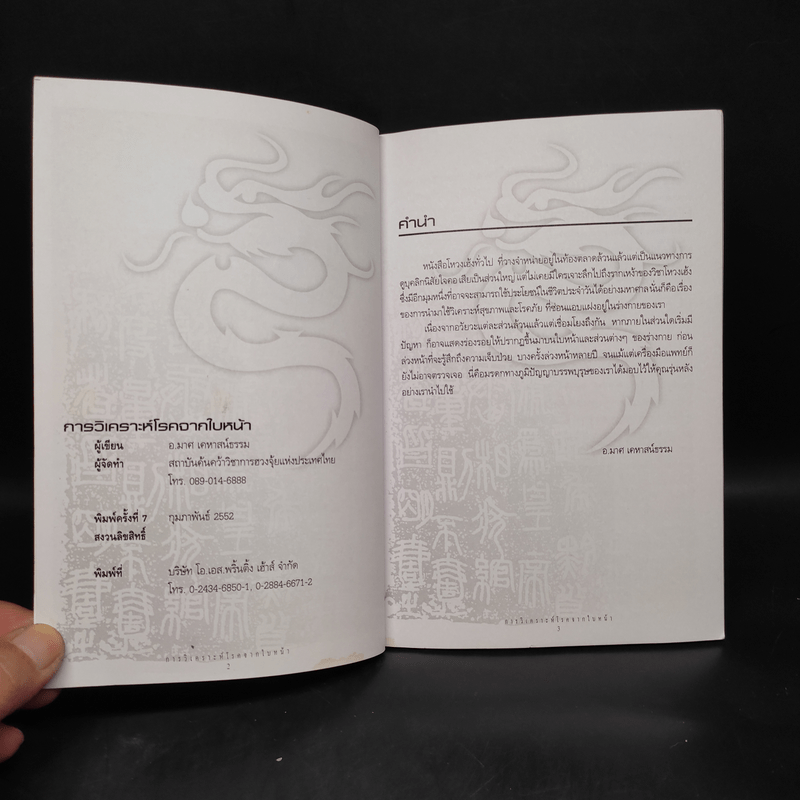 การวิเคราะห์โรคจากใบหน้า
ผู้เขียน อ.มาศ เคหาสน์ธรรม
ผู้จัดทำ สถาบันค้นคว้าวิชาการฮวงจุ้ยแห่งประเทศไทย
โทร. 089-014-6888
พิมพ์ครั้งที่ 7 กุมภาพันธ์ 2552
สงวนลิขสิทธิ์
พิมพ์ที่ บริษัท โอ.เอส.พริ้นติ้ง เฮ้าส์ จำกัด
โทร. 0-2434-6850-1, 0-2884-6671-2
การวิเคราะห์โรคจากใบหน้า
2
คำนำ
หนังสือโหวงเฮ้งทั่วไป ที่วางจำหน่ายอยู่ในท้องตลาดล้วนแล้วแต่เป็นแนวทางการ
ดูบุคลิกนิสัยใจคอ เสียเป็นส่วนใหญ่ แต่ไม่เคยมีใครเจาะลึกไปถึงรากเหง้าของวิชาโหวงเฮ้ง
ซึ่งมีอีกมุมหนึ่งที่อาจจะสามารถใช้ประโยชน์ในชีวิตประจำวันได้อย่างมหาศาล นั่นก็คือเรื่อง
ของการนำมาใช้วิเคราะห์สุขภาพและโรคภัย ที่ซ่อนแอบแฝงอยู่ในร่างกายของเรา
เนื่องจากอวัยวะแต่ละส่วนล้วนแล้วแต่เชื่อมโยงถึงกัน หากภายในส่วนใดเริ่มมี
ปัญหา ก็อาจแสดงร่องรอยให้ปรากฏขึ้นมาบนใบหน้าและส่วนต่างๆ ของร่างกาย ก่อน
ล่วงหน้าที่จะรู้สึกถึงความเจ็บป่วย บางครั้งล่วงหน้าหลายปี จนแม้แต่เครื่องมือแพทย์ก็
ยังไม่อาจตรวจเจอ นี่คือมรดกทางภูมิปัญญาบรรพบุรุษของเราได้มอบไว้ให้คุณรุ่นหลัง
อย่างเรานำไปใช้
อ.มาศ เคหาสน์ธรรม
การวิเคราะห์โรคจากใบหน้า
3